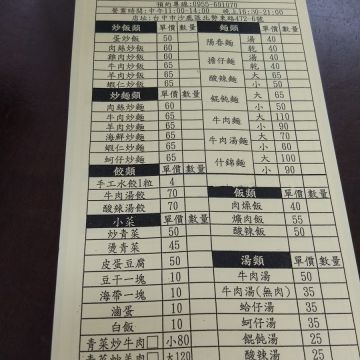 預約專線:0955-691070
營業時間:中午11:00-14:00 晚上16:30-21:00
店址:台中市沙鹿區北勢東路472-6號
炒飯類 單價 數量
蛋炒飯 50
肉絲炒飯 60
雞肉炒飯 60
牛肉炒飯 65
羊肉炒飯 65
蝦仁炒飯 65
炒麵類 單價 數量
肉絲炒麵 60
牛肉炒麵 65
羊肉炒麵 65
海鮮炒麵 65
蝦仁炒麵 65
蚵仔炒麵 65
餃類 單價 數量
手工水餃1粒 4
牛肉湯餃 70
酸辣湯餃 70
小菜 單價 數量
炒青菜 50
燙青菜 45
皮蛋豆腐 50
豆干一塊 10
海帶一塊 10
滷蛋 10
白飯 10
青菜炒牛肉 小80
青菜炒羊肉 大120
麵類 單價 數量
陽春麵 湯 40
乾 40
擔仔麵 湯 40
乾 40
酸辣麵 大 65
小 50
餛飩麵 大 65
小 50
牛肉麵 大 110
小 90
牛肉湯麵 大 90
小 70
什錦麵 大 100
小 90
飯類 單價 數量
肉燥飯 40
爌肉飯 55
酸辣飯 50
湯類 單價 數量
牛肉湯 50
牛肉湯(無肉) 35
蛤仔湯 35
蚵仔湯 35
餛飩湯 25
酸辣湯 25